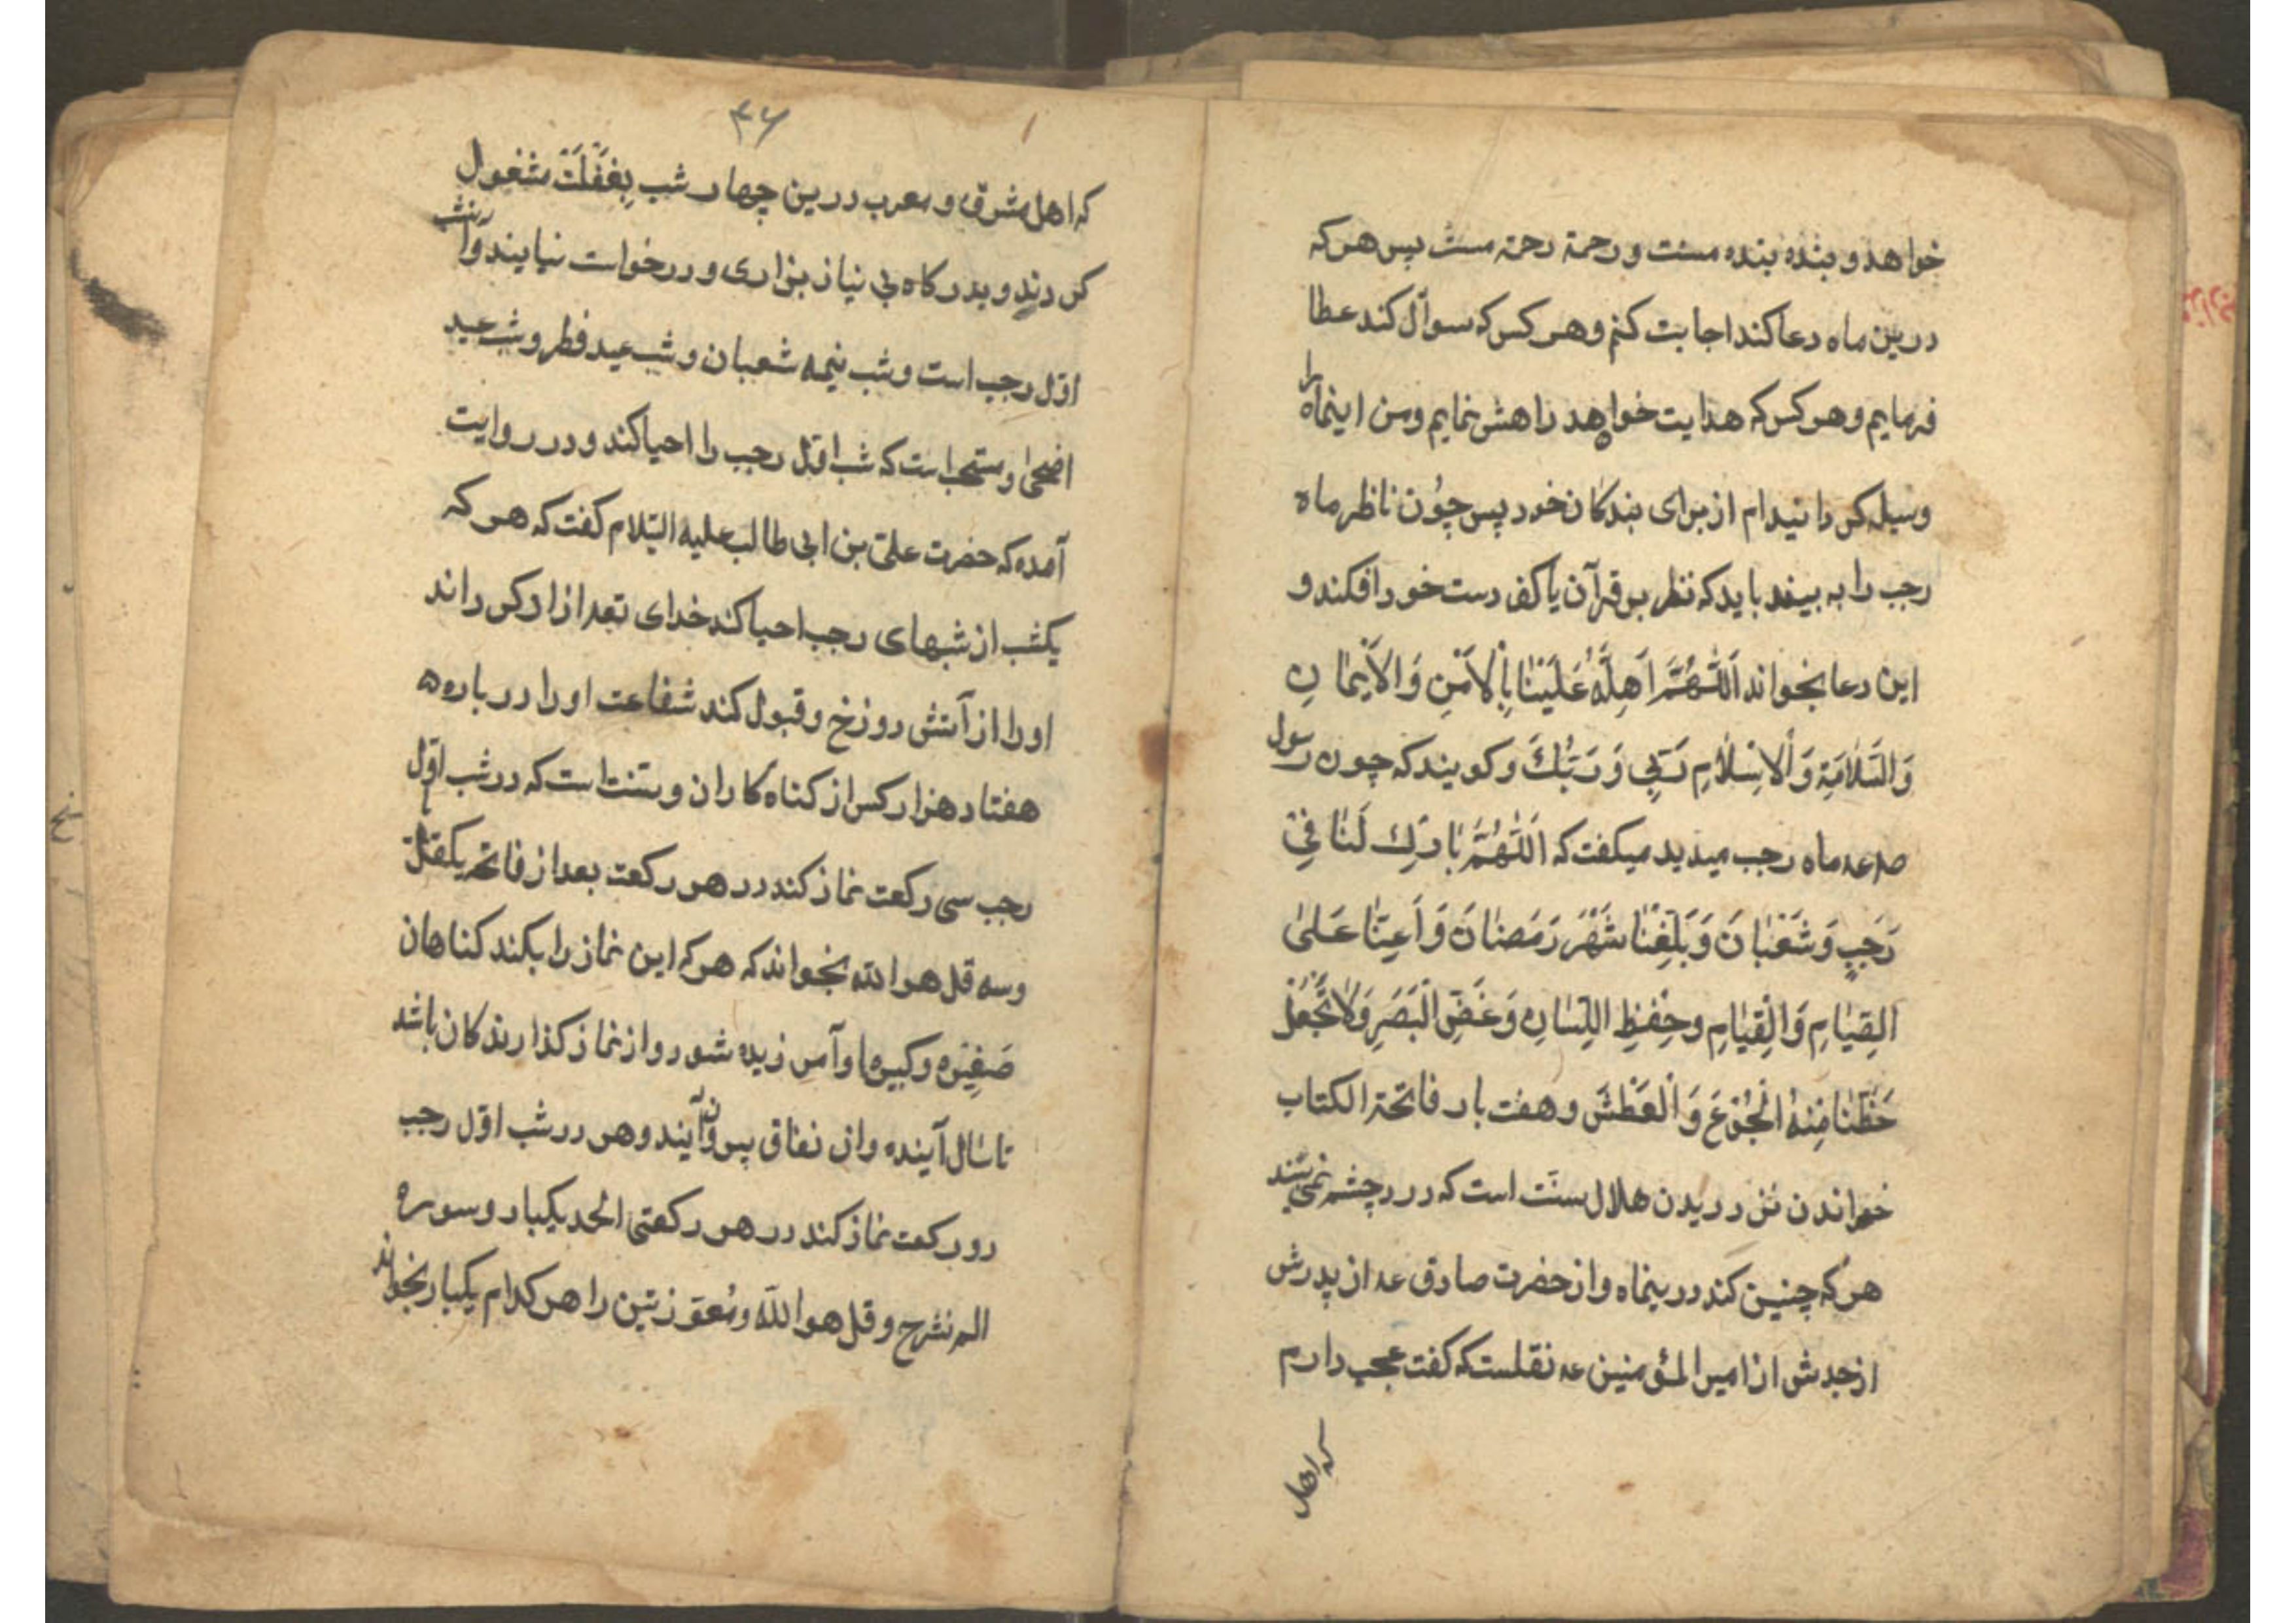 خواهد و بنده بنده منست و رحمة رحمة منست پس هر که
درین ماه دعا کند اجابت کنم و هر کس که سوآل کند عطا
فرمایم و هر کس که هدایت خواهد راهش نمایم و من اینماه را
وسیله کردانیدام از برای بندکان خود پس چُون ناظر ماه
رجب را به بیند باید که نظر بر قرآن یا کف دست خود افکند و
این دعا بخواند اَللّٰهُمَّ اَهِلَّهُ عَلَیْنٰا بِالْاَمْنِ وَالْاَیْمٰانِ
وَالسَّلٰامَةِ وَالْاِسْلٰامِ رَبّی وَ رَبُّكَ و کویند که چون رسول
صلعم ماه رجب میدید میکفت که اَللّٰهُمَّ بٰارِكْ لَنٰا فِیْ
رَجَبٍ وَ شَعْبٰانَ وَ بَلِّغْنٰا شَهْرَ رَمَضٰانَ وَ اَعِنّٰا عَلیٰ
الصِّیٰامِ وَالْقِیٰامِ وَحِفْظِ اللِّسٰانِ وَ غَضِّ الْبَصَرِ وَلٰا تَجْعَلْ
حَظَّنٰا مِنْهُ الْجُوْعَ وَ الْعَطْشَ و هفت بار فاتحة الکتاب
خواندن نزد دیدن هلال سنّت است که درد چشم نمی بیند
هر که چنین کند درینماه و از حضرت صادق عه از پدرش
از جدش از امیر المؤمنین عه نقلست که کفت عجب دارم
که اهل
۴۶
که اهل مشرق و مغرب درین چهار شب بِغَفْلَتْ مشغول
کردند و بدرکاه بی نیاز بزاری و درخواست نیایند و آنشب
اوّل رجب است و شب نیمه شعبان و شب عید فطر و شب عید
اضحیٰ و مستحب است که شب اوّل رجب را احیا کند و در روایت
آمده که حضرت علیّ بن ابی طالب علیه السّلام کفت که هر که
یکشب از شبهای رجب احیا کند خدای تعه ازاد کرداند
اورا از آتش دوزخ و قبول کند شفاعت اورا در باره ه
هفتاد هزار کس از کناه کاران و سنت است که در شب اوّل
رجب سی رکعت نماز کند در هر رکعت بعد از فاتحه یکقل یا
وسه قل هو الله بخواند که هر که این نماز را بکند کناهان
صَغِیْره و کبیره‌ها و آمرزیده شود و از نماز کذارندکان باشد
تا سٰال آینده و از نفاق برون آیند و هر در شب اوّل رجب
دو رکعت نماز کند در هر رکعتی الحد یکبار و سوره
الم نشرح و قل هو اللّه و مُعوّزتین را هر کدام یکبار بخواند